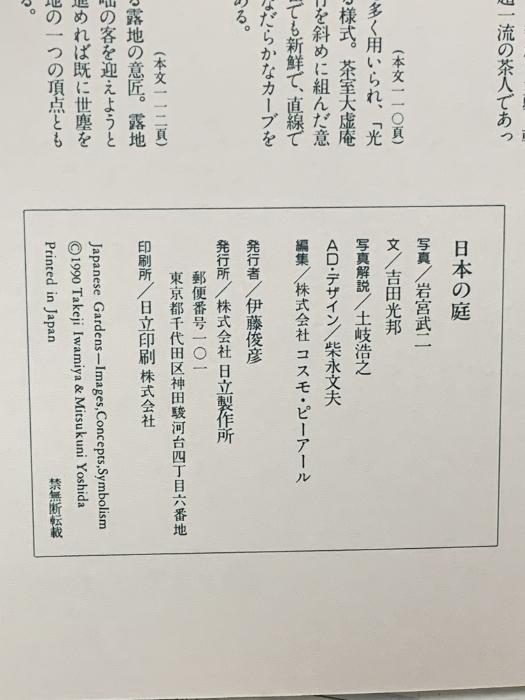 一流の茶人であっ
多く用いられ、「光
様式。茶室大虚庵
を斜めに組んだ意
ても新鮮で、直線で
なだらかなカーブを
ある。
(本文一一〇頁)
露地の意匠。露地
の客を迎えようと
進めれば既に世塵を
地の一つの頂点とも
る。
(本文一一二頁)
日本の庭
写真／岩宮武二
文／吉田光邦
写真解説／土岐浩之
AD・デザイン／柴永文夫
編集／株式会社 コスモ・ピーアール
発行者／伊藤俊彦
発行所／株式会社 日立製作所
郵便番号一〇一
東京都千代田区神田駿河台四丁目六番地
印刷所／日立印刷 株式会社
Japanese Gardens—Images,Concepts,Symbolism
©1990 Takeji Iwamiya & Mitsukuni Yoshida
Printed in Japan
禁無断転載